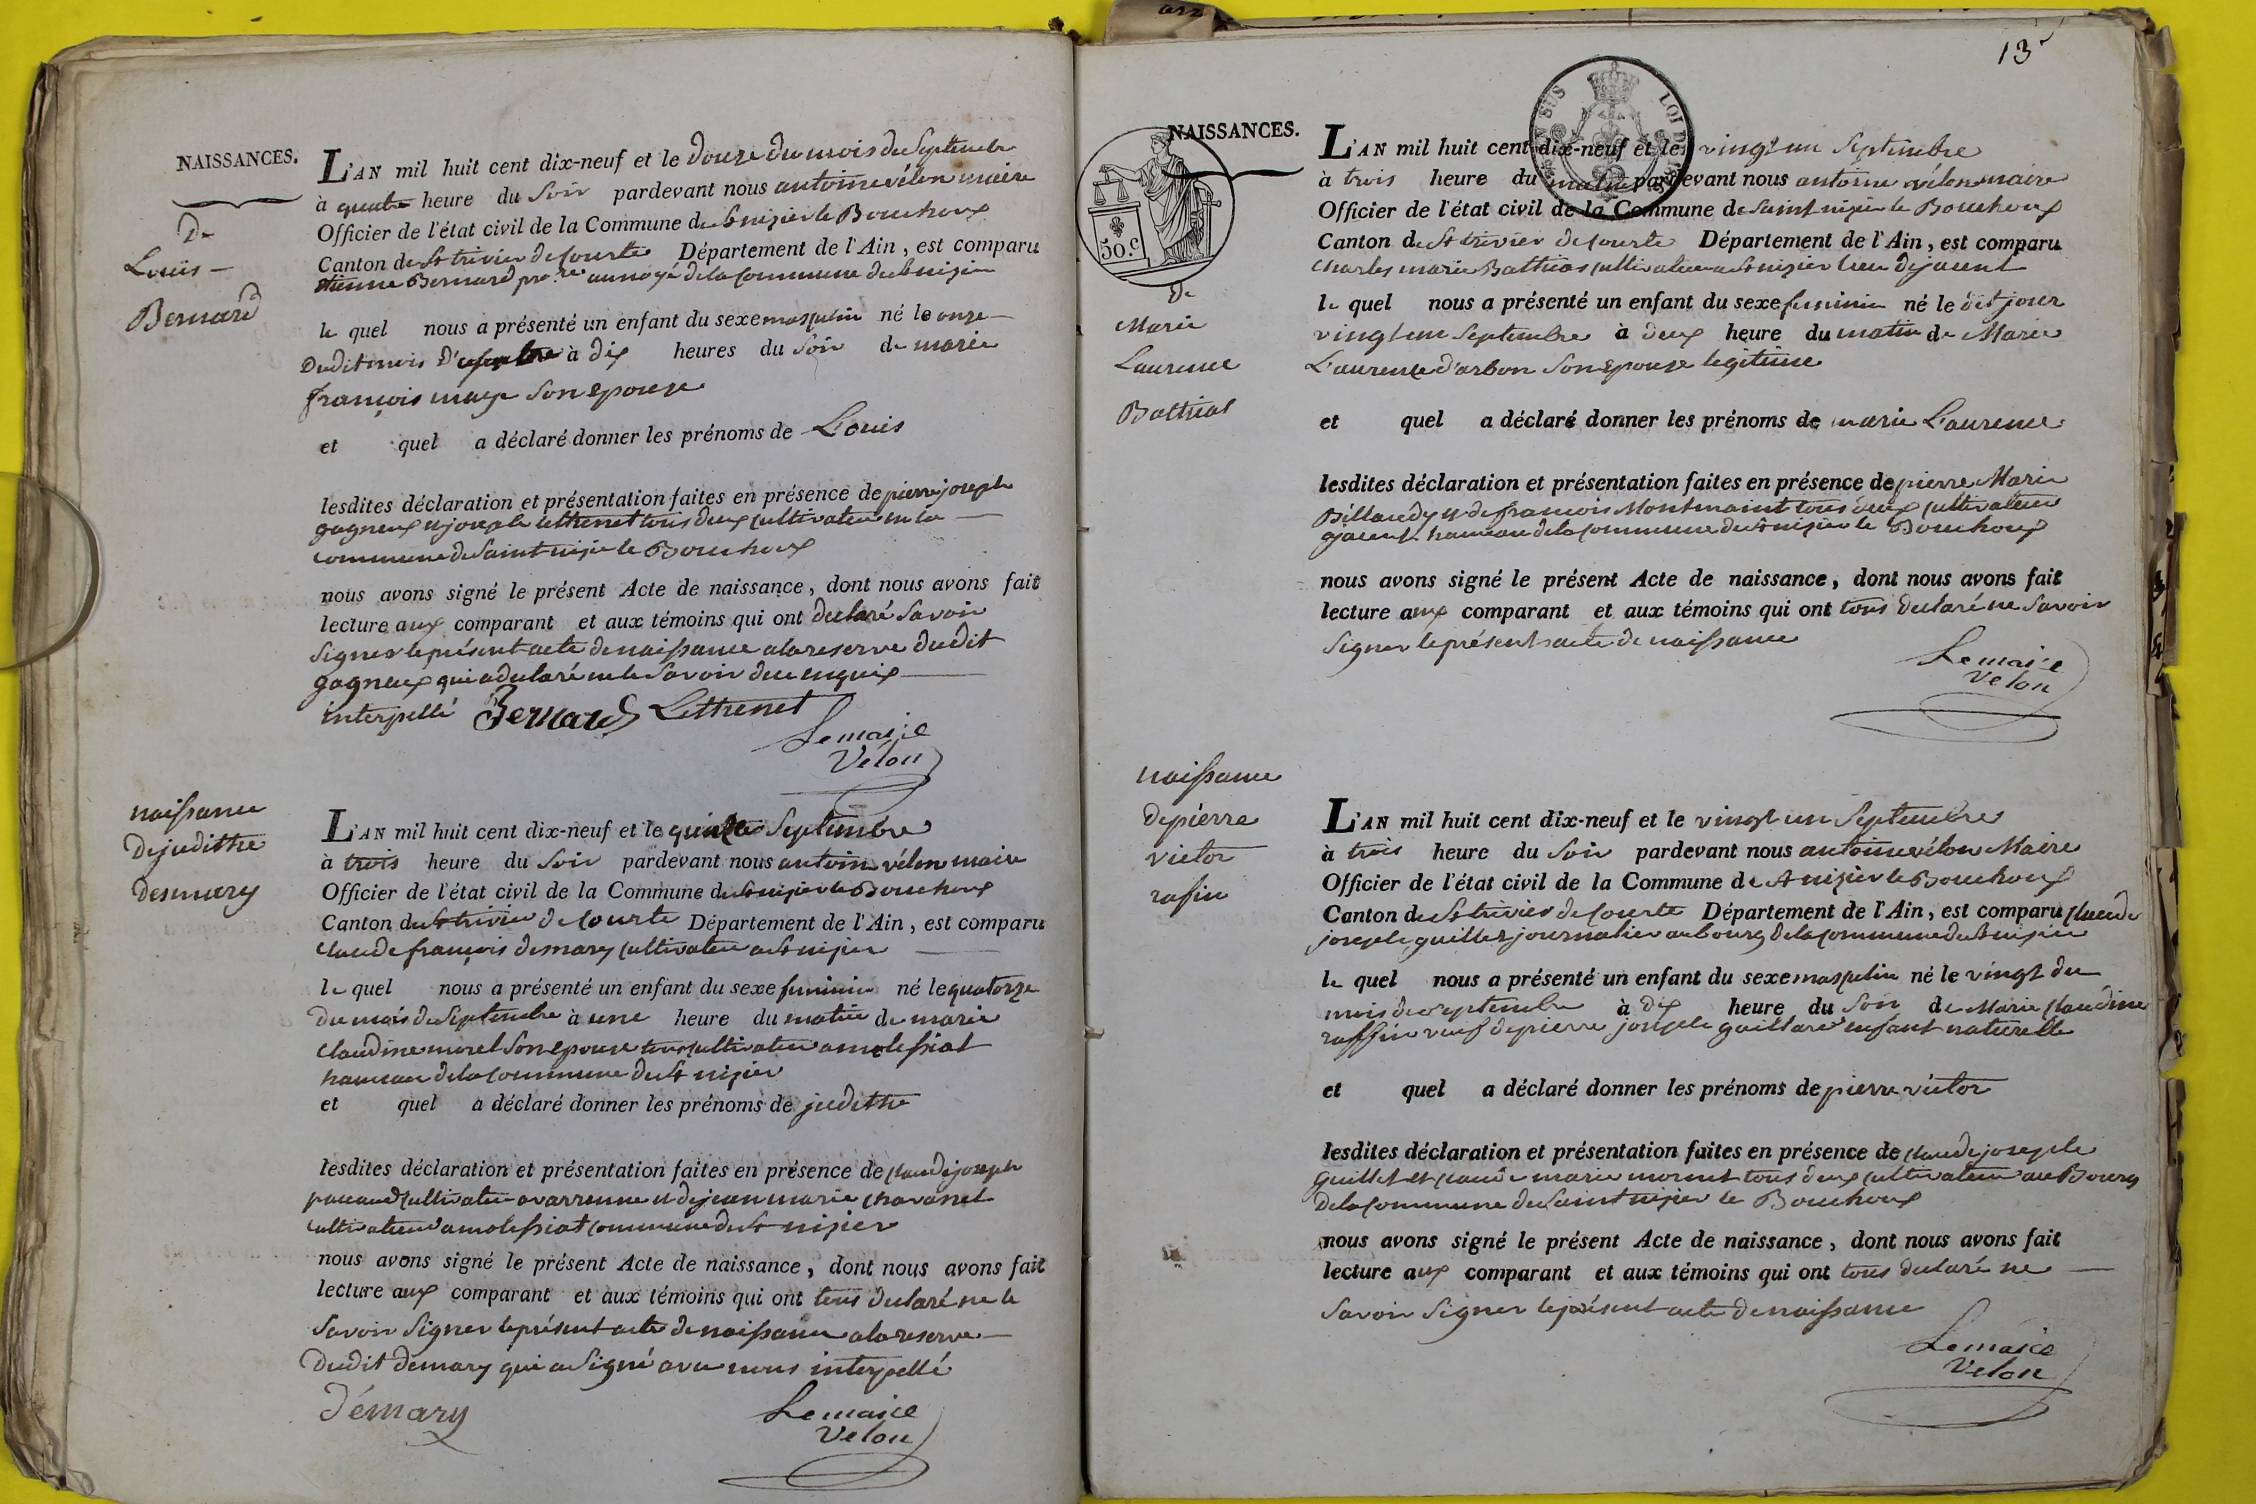 NAISSANCES.
De
Louis
Bernard
L'AN mil huit cent dix-neuf et le douze du mois de Septembre
à quatre heure du Soir pardevant nous antoine vélon maire
Officier de l'état civil de la Commune de St nizier le Bouchoux
Canton de St trivier de Courte Département de l'Ain, est comparu
étienne Bernard de la Commune de St nizier
le quel nous a présenté un enfant du sexe masculin né le onze
Dudit mois à dix heures du Soir de marie
françois son epouse
et quel a déclaré donner les prénoms de Louis
lesdites déclaration et présentation faites en présence de pierre joseph
gagneux et joseph Lethenet tous deux cultivateur en la
commune de Saint nizier le Bouchoux
nous avons signé le présent Acte de naissance, dont nous avons fait
lecture aux comparant et aux témoins qui ont declaré Savoir
Signer le présent acte de naissance a la reserve dudit
gagneux qui a declaré ne le Savoir de ce enquis
interpellé Bernard Lethenet
Le maire
Vélon
naissance
de judithe
desmary
L'AN mil huit cent dix-neuf et le quinze Septembre
à trois heure du Soir pardevant nous antoine vélon maire
Officier de l'état civil de la Commune de St nizier le Bouchoux
Canton de St trivier de Courte Département de l'Ain, est comparu
Claude françois demary cultivateur a St nizier
le quel nous a présenté un enfant du sexe feminin né le quatorze
du mois de Septembre à une heure du matin de marie
Claudine morel Son epouse tous cultivateur a molessiat
hameau de la Commune de St nizier
et quel a déclaré donner les prénoms de judithe
lesdites déclaration et présentation faites en présence de Claude joseph
cultivateur a varenne et de jean marie Chavanel
cultivateur a molessiat commune de St nizier
nous avons signé le présent Acte de naissance, dont nous avons fait
lecture aux comparant et aux témoins qui ont tous declaré ne le
Savoir Signer le présent acte de naissance a la reserve
Dudit demary qui a Signé avec nous interpellé
Démary
Le maire
Velon
13
NAISSANCES.
50.c
De
Marie
Laurence
Bathias
L'AN mil huit cent dix-neuf et le vingt un Septembre
à trois heure du matin pardevant nous antoine vélon maire
Officier de l'état civil de la Commune de Saint nizier le Bouchoux
Canton de St trivier de Courte Département de l'Ain, est comparu
Charles marie Bathias cultivateur a St nizier
le quel nous a présenté un enfant du sexe feminin né le dit jour
vingt un Septembre à deux heure du matin de Marie
Laurence d'arbon Son epouse legitime
et quel a déclaré donner les prénoms de marie Laurence
lesdites déclaration et présentation faites en présence de pierre Marie
Billaudy et de francois Montmaint tous deux cultivateur
hameau de la commune de St nizier le Bouchoux
nous avons signé le présent Acte de naissance, dont nous avons fait
lecture aux comparant et aux témoins qui ont tous declaré ne Savoir
Signer le présent acte de naissance
Le maire
Velon
naissance
de pierre
victor
rafin
L'AN mil huit cent dix-neuf et le vingt un Septembre
à trois heure du Soir pardevant nous antoine vélon Maire
Officier de l'état civil de la Commune de St nizier le Bouchoux
Canton de St trivier de Courte Département de l'Ain, est comparu Claude
joseph guillet journalier au bourg de la commune de St nizier
le quel nous a présenté un enfant du sexe masculin né le vingt du
mois de Septembre à dix heure du Soir de Marie Claudine
raffin veuf de pierre joseph gaillard enfant naturelle
et quel a déclaré donner les prénoms de pierre victor
lesdites déclaration et présentation faites en présence de Claude joseph
Guillet et Claude marie morent tous deux cultivateur au Bourg
de la Commune de Saint nizier le Bouchoux
nous avons signé le présent Acte de naissance, dont nous avons fait
lecture aux comparant et aux témoins qui ont tous declaré ne
Savoir Signer le présent acte de naissance
Le maire
Velon